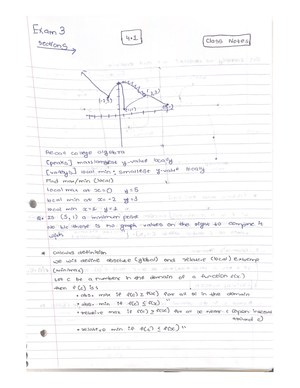 Exam 3
section 5
4.1
Class Notes
Recall college algebra
[peaks] max: largest y-value locally
[valleys] local min: smallest y-value locally
Find max/min (local)
local max at x=0 y=5
local min at x=-2 y=3
local min x=1 y=1
Is a minimum point
No b/c there is no graph values on the right to compare it
with
* Calculus definition
we will define absolute (global) and relative (local) extrema
(min/max)
Let c be a number in the domain of a function f(x)
then f(c) is:
• abs. max if f(c) ≥ f(x) for all x in the domain
• abs. min if f(c) ≤ f(x) "
• relative max if f(c) ≥ f(x) for all x near c (open interval
around c)
• relative min if f(c) ≤ f(x) "